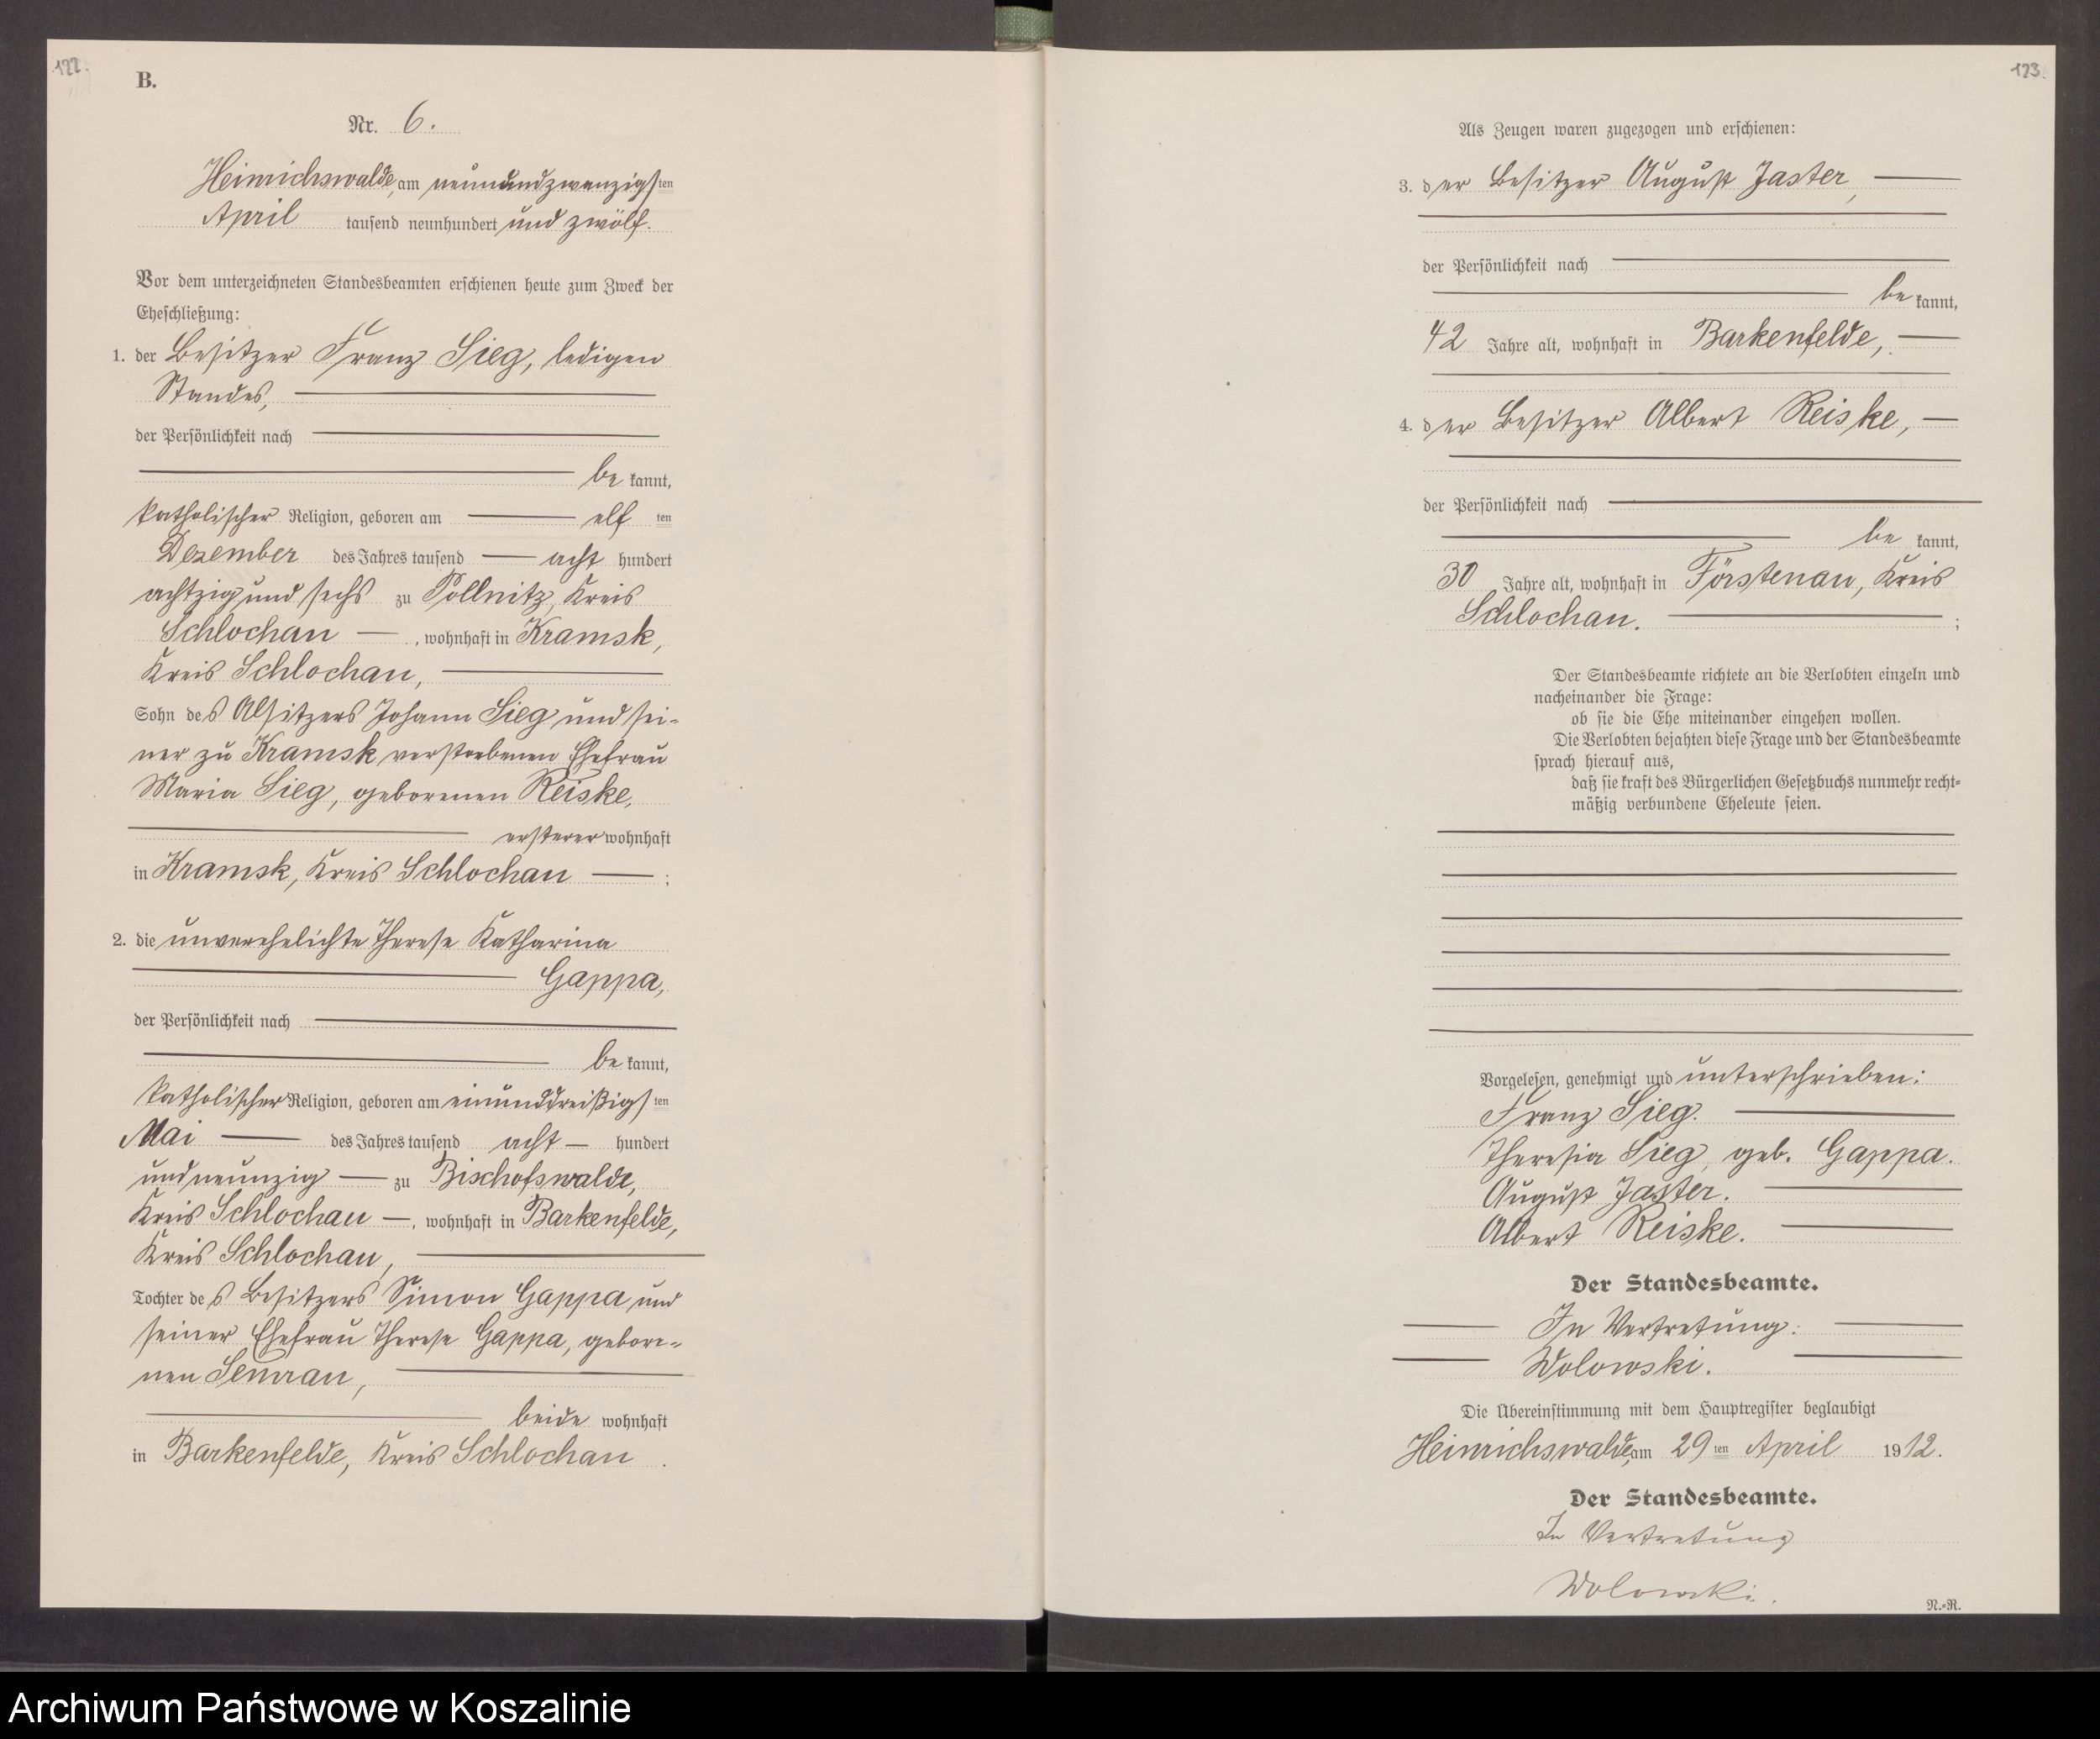 122.
B.
Nr. 6.
Heinrichswalde, am neunundzwanzigsten
April tausend neunhundert und zwölf.
Vor dem unterzeichneten Standesbeamten erschienen heute zum Zweck der
Eheschließung:
1. der Besitzer Franz Sieg, ledigen
Standes,
der Persönlichkeit nach
be kannt,
katholischer Religion, geboren am elf ten
Dezember des Jahres tausend acht hundert
achtzig und sechs zu Pollnitz, Kreis
Schlochau, wohnhaft in Kramsk,
Kreis Schlochau,
Sohn des Altsitzers Johann Sieg und sei-
ner zu Kramsk verstorbenen Ehefrau
Maria Sieg, geborenen Reiske,
ersterer wohnhaft
in Kramsk, Kreis Schlochau ;
2. die unverehelichte Therese Katharina
Gappa,
der Persönlichkeit nach
be kannt,
katholischer Religion, geboren am einunddreißigsten
Mai des Jahres tausend acht hundert
und neunzig zu Bischofswalde,
Kreis Schlochau, wohnhaft in Barkenfelde,
Kreis Schlochau,
Tochter des Besitzers Simon Gappa und
seiner Ehefrau Therese Gappa, gebore-
nen Semrau,
beide wohnhaft
in Barkenfelde, Kreis Schlochau.
123.
Als Zeugen waren zugezogen und erschienen:
3. der Besitzer August Jaster,
der Persönlichkeit nach
be kannt,
42 Jahre alt, wohnhaft in Barkenfelde,
4. der Besitzer Albert Reiske,
der Persönlichkeit nach
be kannt,
30 Jahre alt, wohnhaft in Förstenau, Kreis
Schlochau. ;
Der Standesbeamte richtete an die Verlobten einzeln und
nacheinander die Frage:
ob sie die Ehe miteinander eingehen wollen.
Die Verlobten bejahten diese Frage und der Standesbeamte
sprach hierauf aus,
daß sie kraft des Bürgerlichen Gesetzbuchs nunmehr recht-
mäßig verbundene Eheleute seien.
Vorgelesen, genehmigt und unterschrieben:
Franz Sieg.
Theresia Sieg, geb. Gappa.
August Jaster.
Albert Reiske.
Der Standesbeamte.
In Vertretung:
Wolowski.
Die Übereinstimmung mit dem Hauptregister beglaubigt
Heinrichswalde, am 29 ten April 1912.
Der Standesbeamte.
In Vertretung
Wolowski.
N.-R.
Archiwum Państwowe w Koszalinie